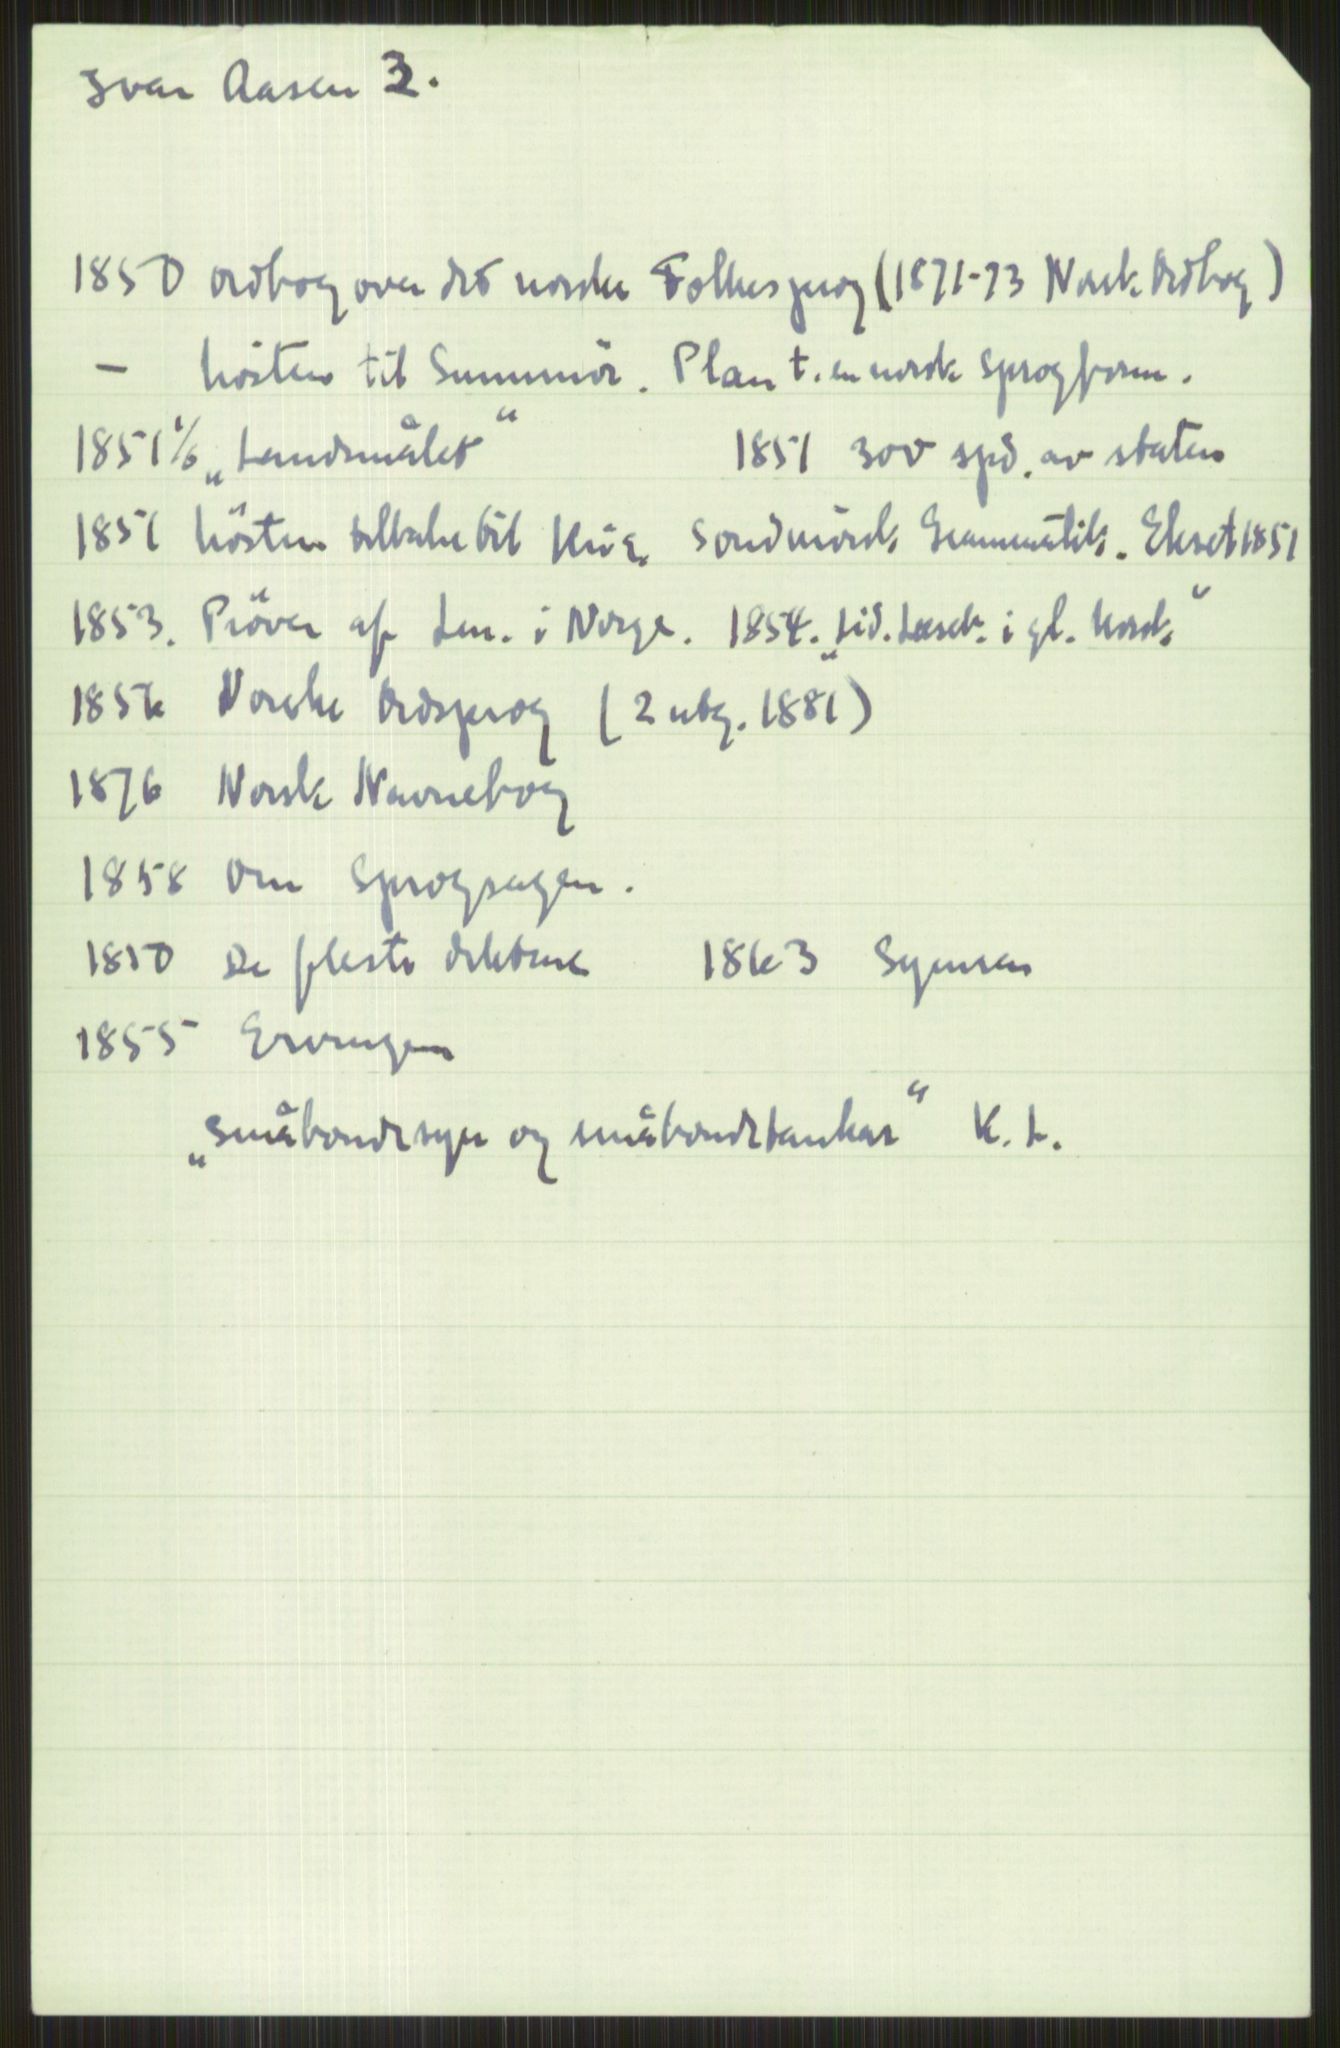 Ivar Aasen 3.
1850 Ordbog over det norske Folkesprog (1871-73 Norsk Ordbog)
— hösten til Sunnmör. Plan t. en norsk sprogform.
1851 1/6 „Landsmålet“ 1851 300 spd. av staten
1851 hösten tilbake til Kria. Sondmörsk Grammatik. Ekset 1851
1853. Pröver af Lm. i Norge. 1854. „Lid. Læseb. i gl. Norsk“
1856 Norske Ordsprog (2 utg. 1881)
1876 Norsk Navnebog
1858 Om Sprogsagen.
1850 De fleste diktene 1863 Symra
1855 Ervingen
„Småbondesyn og småbondetankar“ K. L.